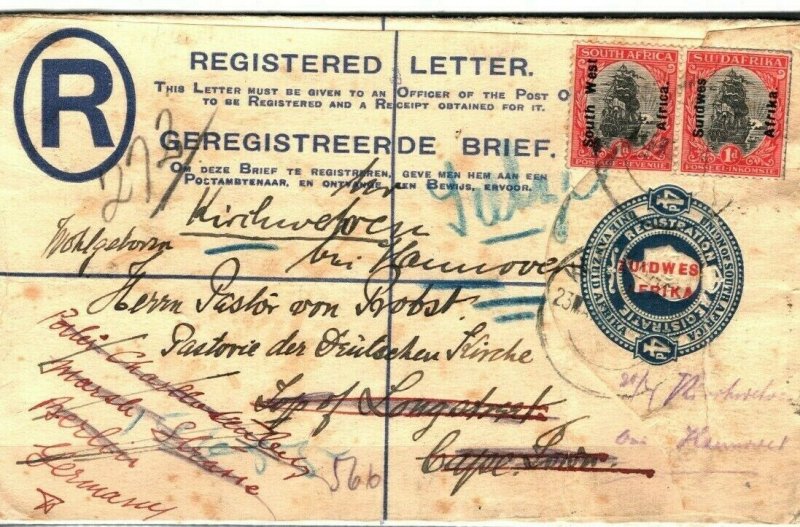 R
REGISTERED LETTER.
THIS LETTER MUST BE GIVEN TO AN OFFICER OF THE POST O
TO BE REGISTERED AND A RECEIPT OBTAINED FOR IT.
GEREGISTREERDE BRIEF.
OM DEZE BRIEF TE REGISTREREN, GEVE MEN HEM AAN EEN
POSTAMBTENAAR, EN ONTVANGE EEN BEWIJS, ERVOOR.
SOUTH AFRICA
South West
Africa.
POSTAGE REVENUE
SUIDAFRIKA
Suidwes
Afrika
1d
POSSEEL-INKOMSTE
273
Kirchwehren
bei Hannover
Wohlgeboren
Herrn Pastor von Probst.
Pastorie der Deutschen Kirche
Top of Longstreet
Cape Town.
Charlottenburg
Strasse
Berlin
Germany
566
4D
UNION OF SOUTH AFRICA
REGISTRATION
REGISTRATIE
UNIE VAN ZUID AFRIKA
4D
ZUIDWES
AFRIKA
23
bei Hannover